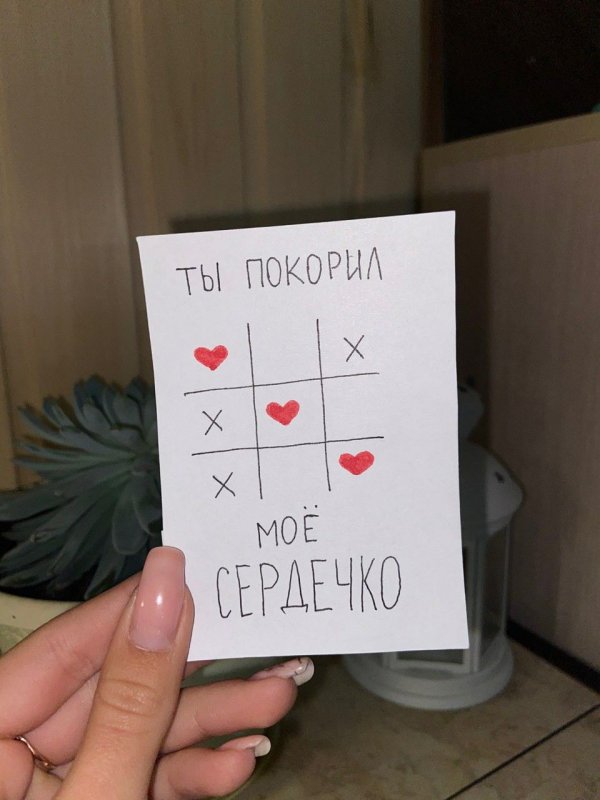 ТЫ ПОКОРИЛ
X
X
X
МОЁ
СЕРДЕЧКО